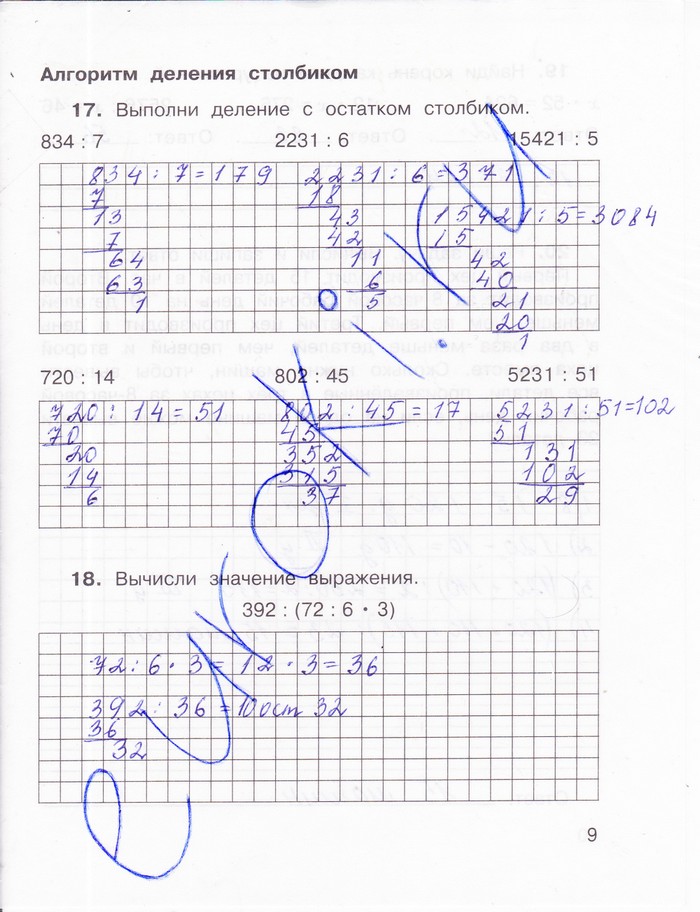 Алгоритм деления столбиком
17. Выполни деление с остатком столбиком.
834 : 7 2231 : 6 15421 : 5
834 : 7 = 179
7
13
7
64
63
1
2231 : 6 = 371
18
43
42
11
6
5
15421 : 5 = 3084
15
42
40
21
20
1
720 : 14 802 : 45 5231 : 51
720 : 14 = 51
70
20
14
6
802 : 45 = 17
45
352
315
37
5231 : 51 = 102
51
131
102
29
18. Вычисли значение выражения.
392 : (72 : 6 · 3)
72 : 6 · 3 = 12 · 3 = 36
392 : 36 = 10 ост 32
36
32
9